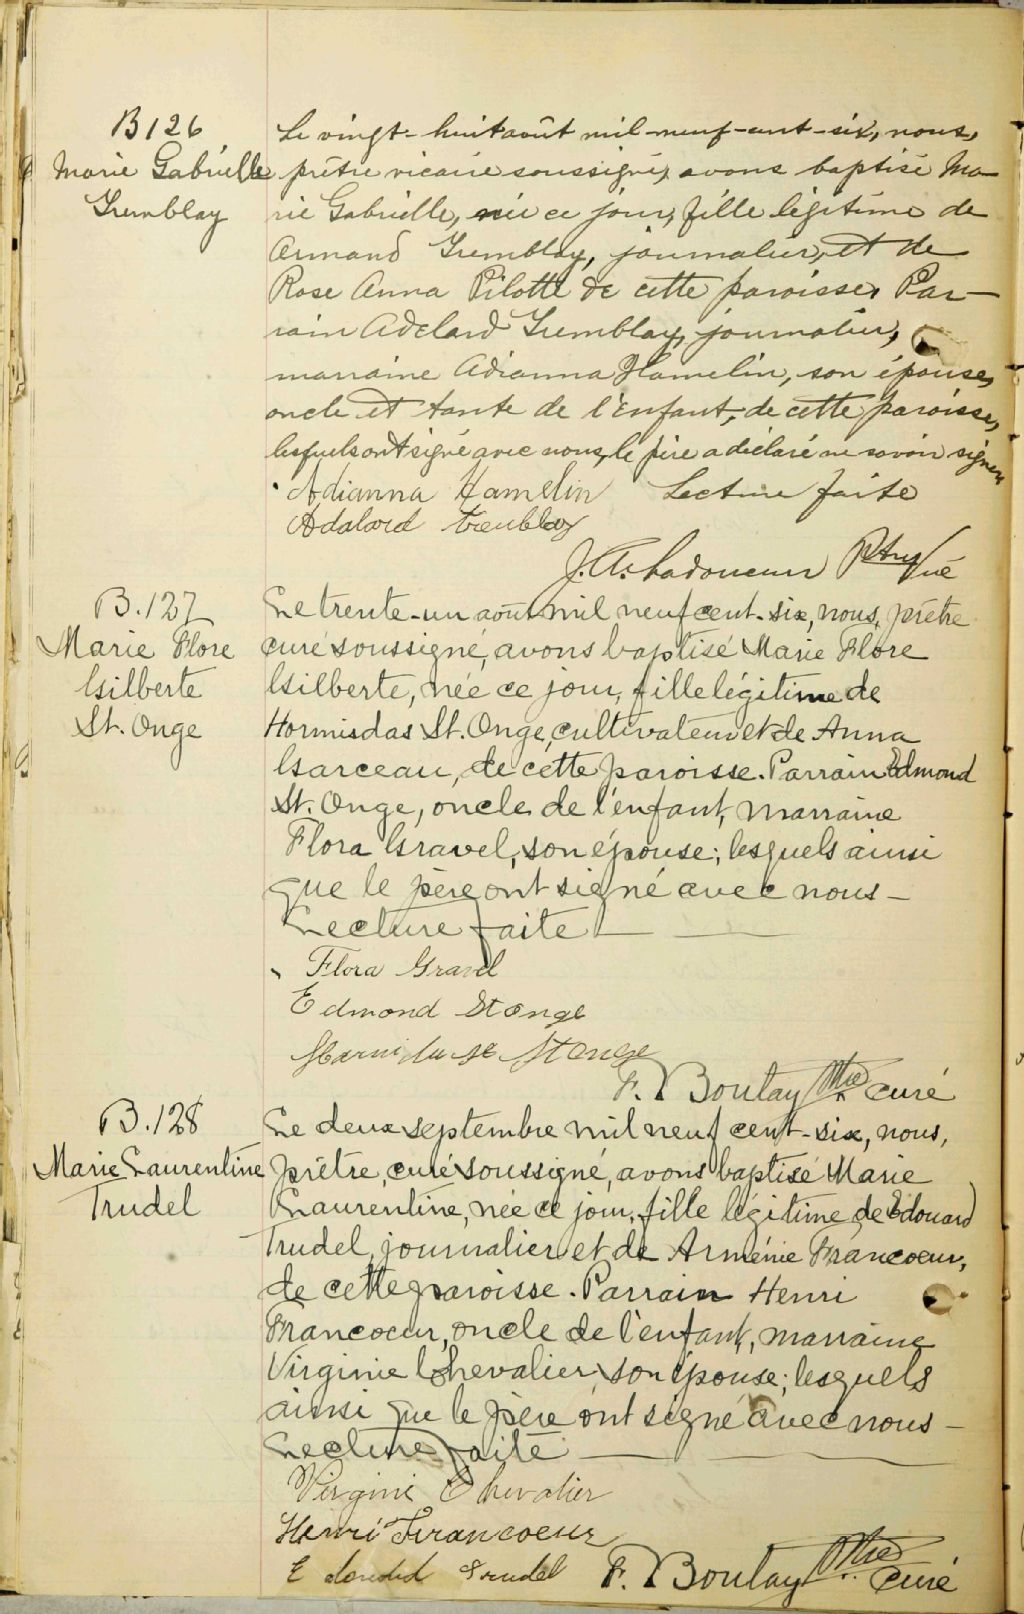 B126
Marie Gabrielle
Tremblay
Le vingt-huit août mil-neuf-cent-six, nous,
prêtre vicaire soussigné, avons baptisé Ma-
rie Gabrielle, née ce jour, fille légitime de
Armand Tremblay, journalier, et de
Rose Anna Pilotte de cette paroisse. Par-
rain Adelard Tremblay, journalier,
marraine Adianna Hamelin, son épouse,
oncle et tante de l'enfant, de cette paroisse,
lesquels ont signé avec nous, le père a déclaré ne savoir signer
Adianna Hamelin Lecture faite
Adalard Tremblay
J. A. Ladouceur Ptre
B.127
Marie Flore
Gilberte
St. Onge
Le trente-un août mil neuf cent-six, nous, prêtre
curé soussigné, avons baptisé Marie Flore
Gilberte, née ce jour, fille légitime de
Hormisdas St. Onge, cultivateur et de Anna
Garceau, de cette paroisse. Parrain Edmond
St. Onge, oncle de l'enfant, marraine
Flora Gravel, son épouse; lesquels ainsi
que le père ont signé avec nous-
Lecture faite
Flora Gravel
Edmond St Onge
St Onge
F. Boulay Ptre curé
B.128
Marie Laurentine
Trudel
Le deux septembre mil neuf cent-six, nous,
prêtre, curé soussigné, avons baptisé Marie
Laurentine, née ce jour, fille légitime de Edouard
Trudel, journalier et de Arménie Francoeur,
de cette paroisse. Parrain Henri
Francoeur, oncle de l'enfant, marraine
Virginie Chevalier, son épouse; lesquels
ainsi que le père ont signé avec nous-
Lecture faite
Virginie Chevalier
Henri Francoeur
Trudel F. Boulay Ptre curé